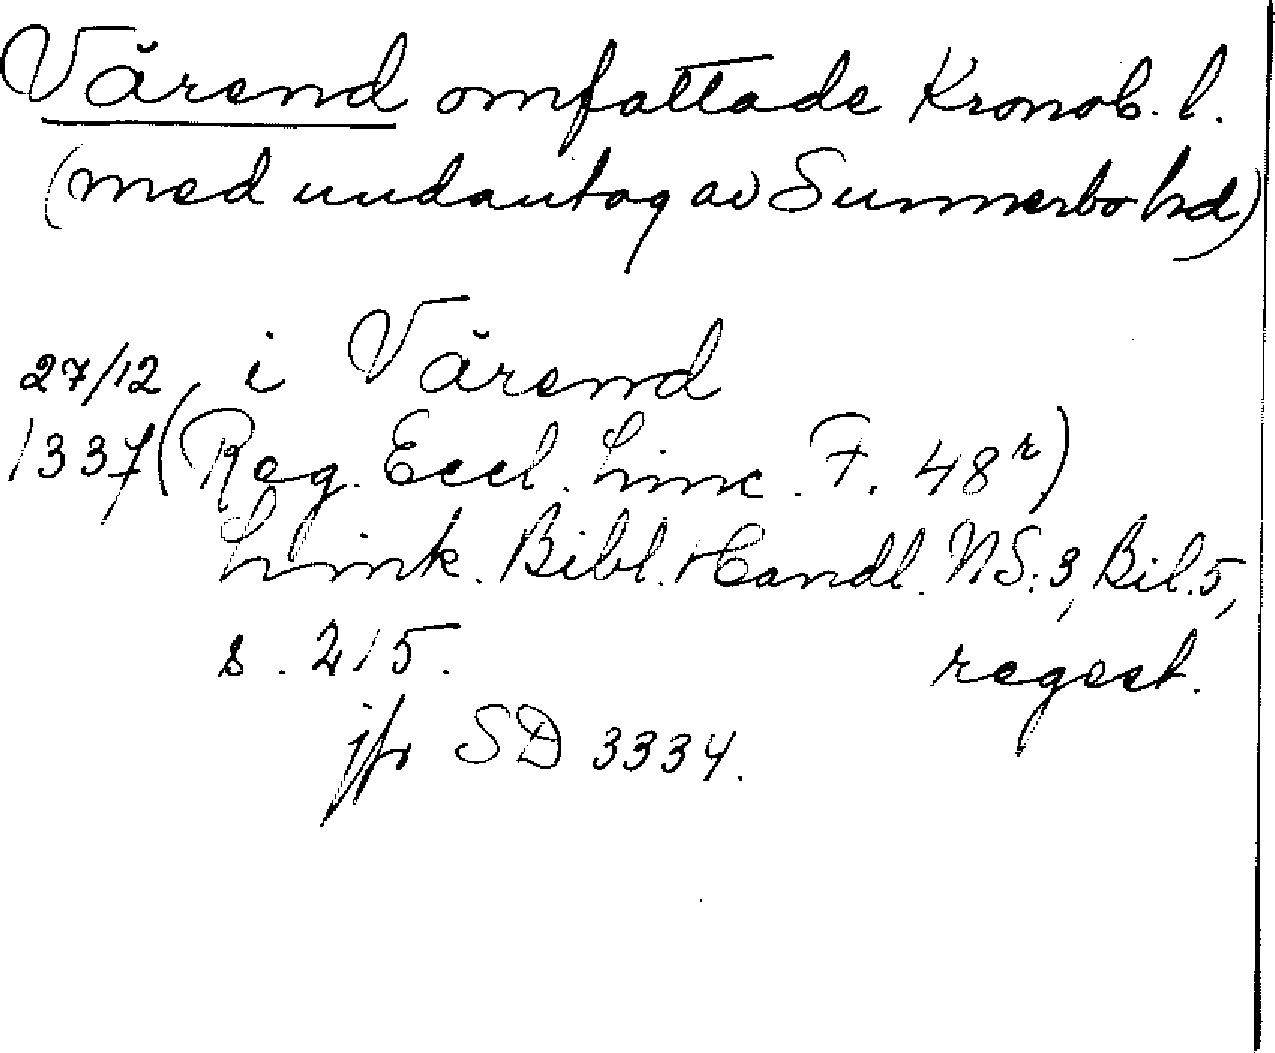 Värend omfattade Kronob. l.
(med undantag av Sunnerbo hd)
27/12 i Värend
1337 (Reg. Eccl. Linc. F. 48r)
Link. Bibl. Handl. NS: 3, Bil. 5,
s. 215. regest.
jfr SD 3334.